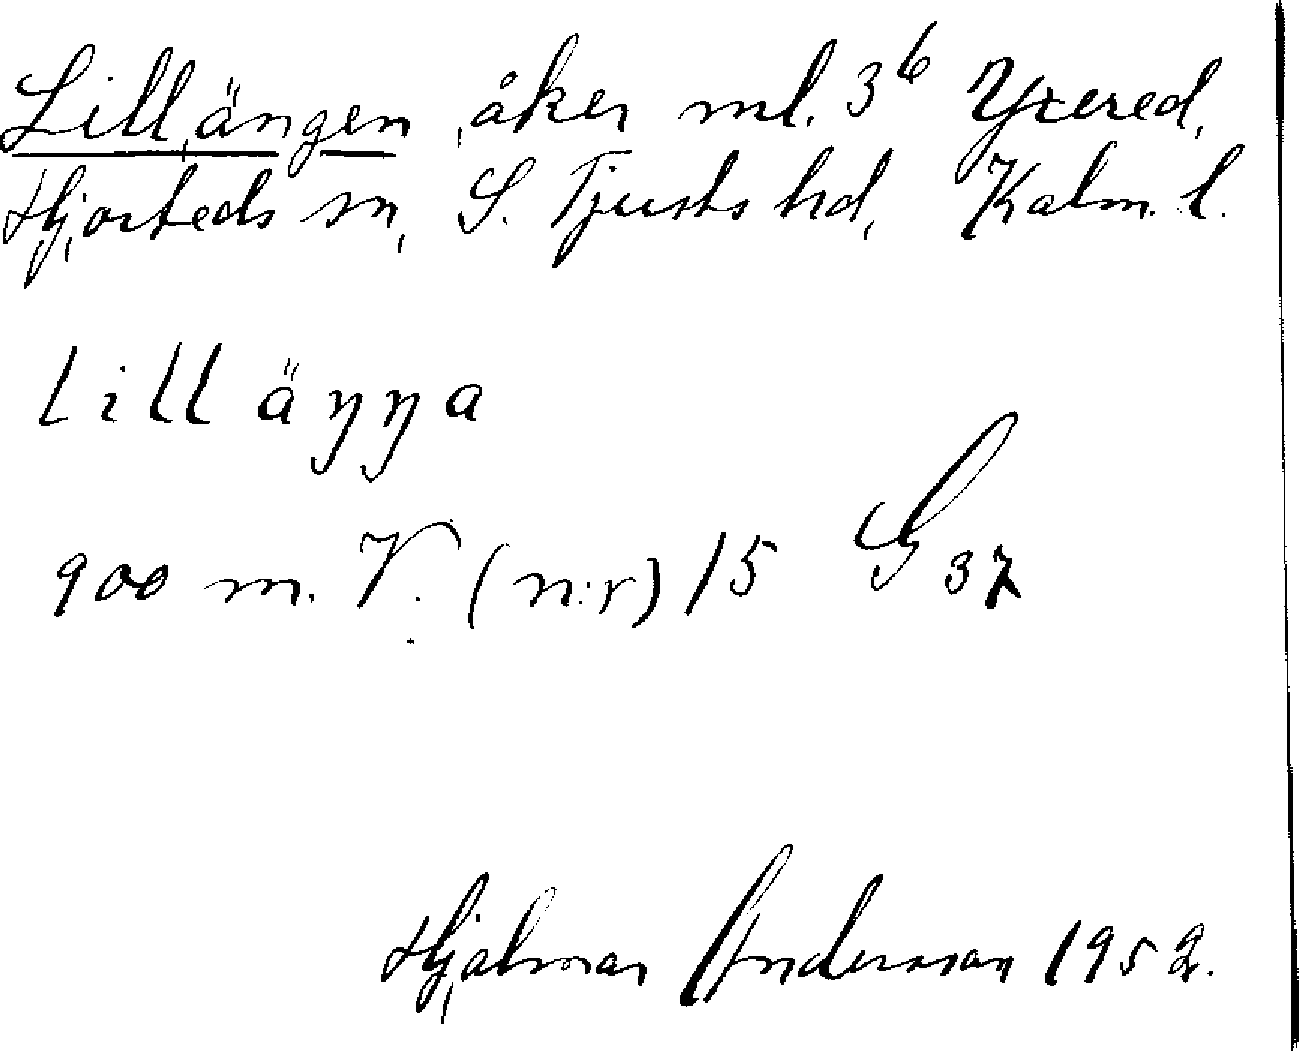 Lillängen, åker ml. 3⁶ Yxered,
Hjorteds sn, S. Tjusts hd, Kalm. l.
lilläŋŋa
900 m. V. (n:r) 15 G 37
Hjalmar Andersson 1952.